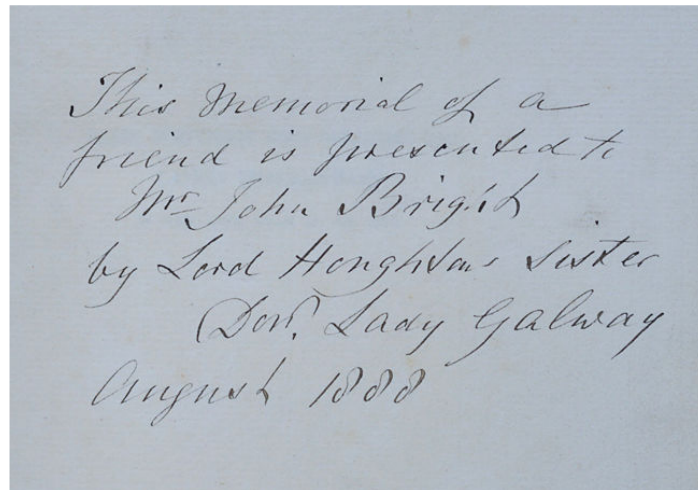 This Memorial of a
friend is presented to
Mr John Bright
by Lord Houghtons Sister
Dowr. Lady Galway
August 1888